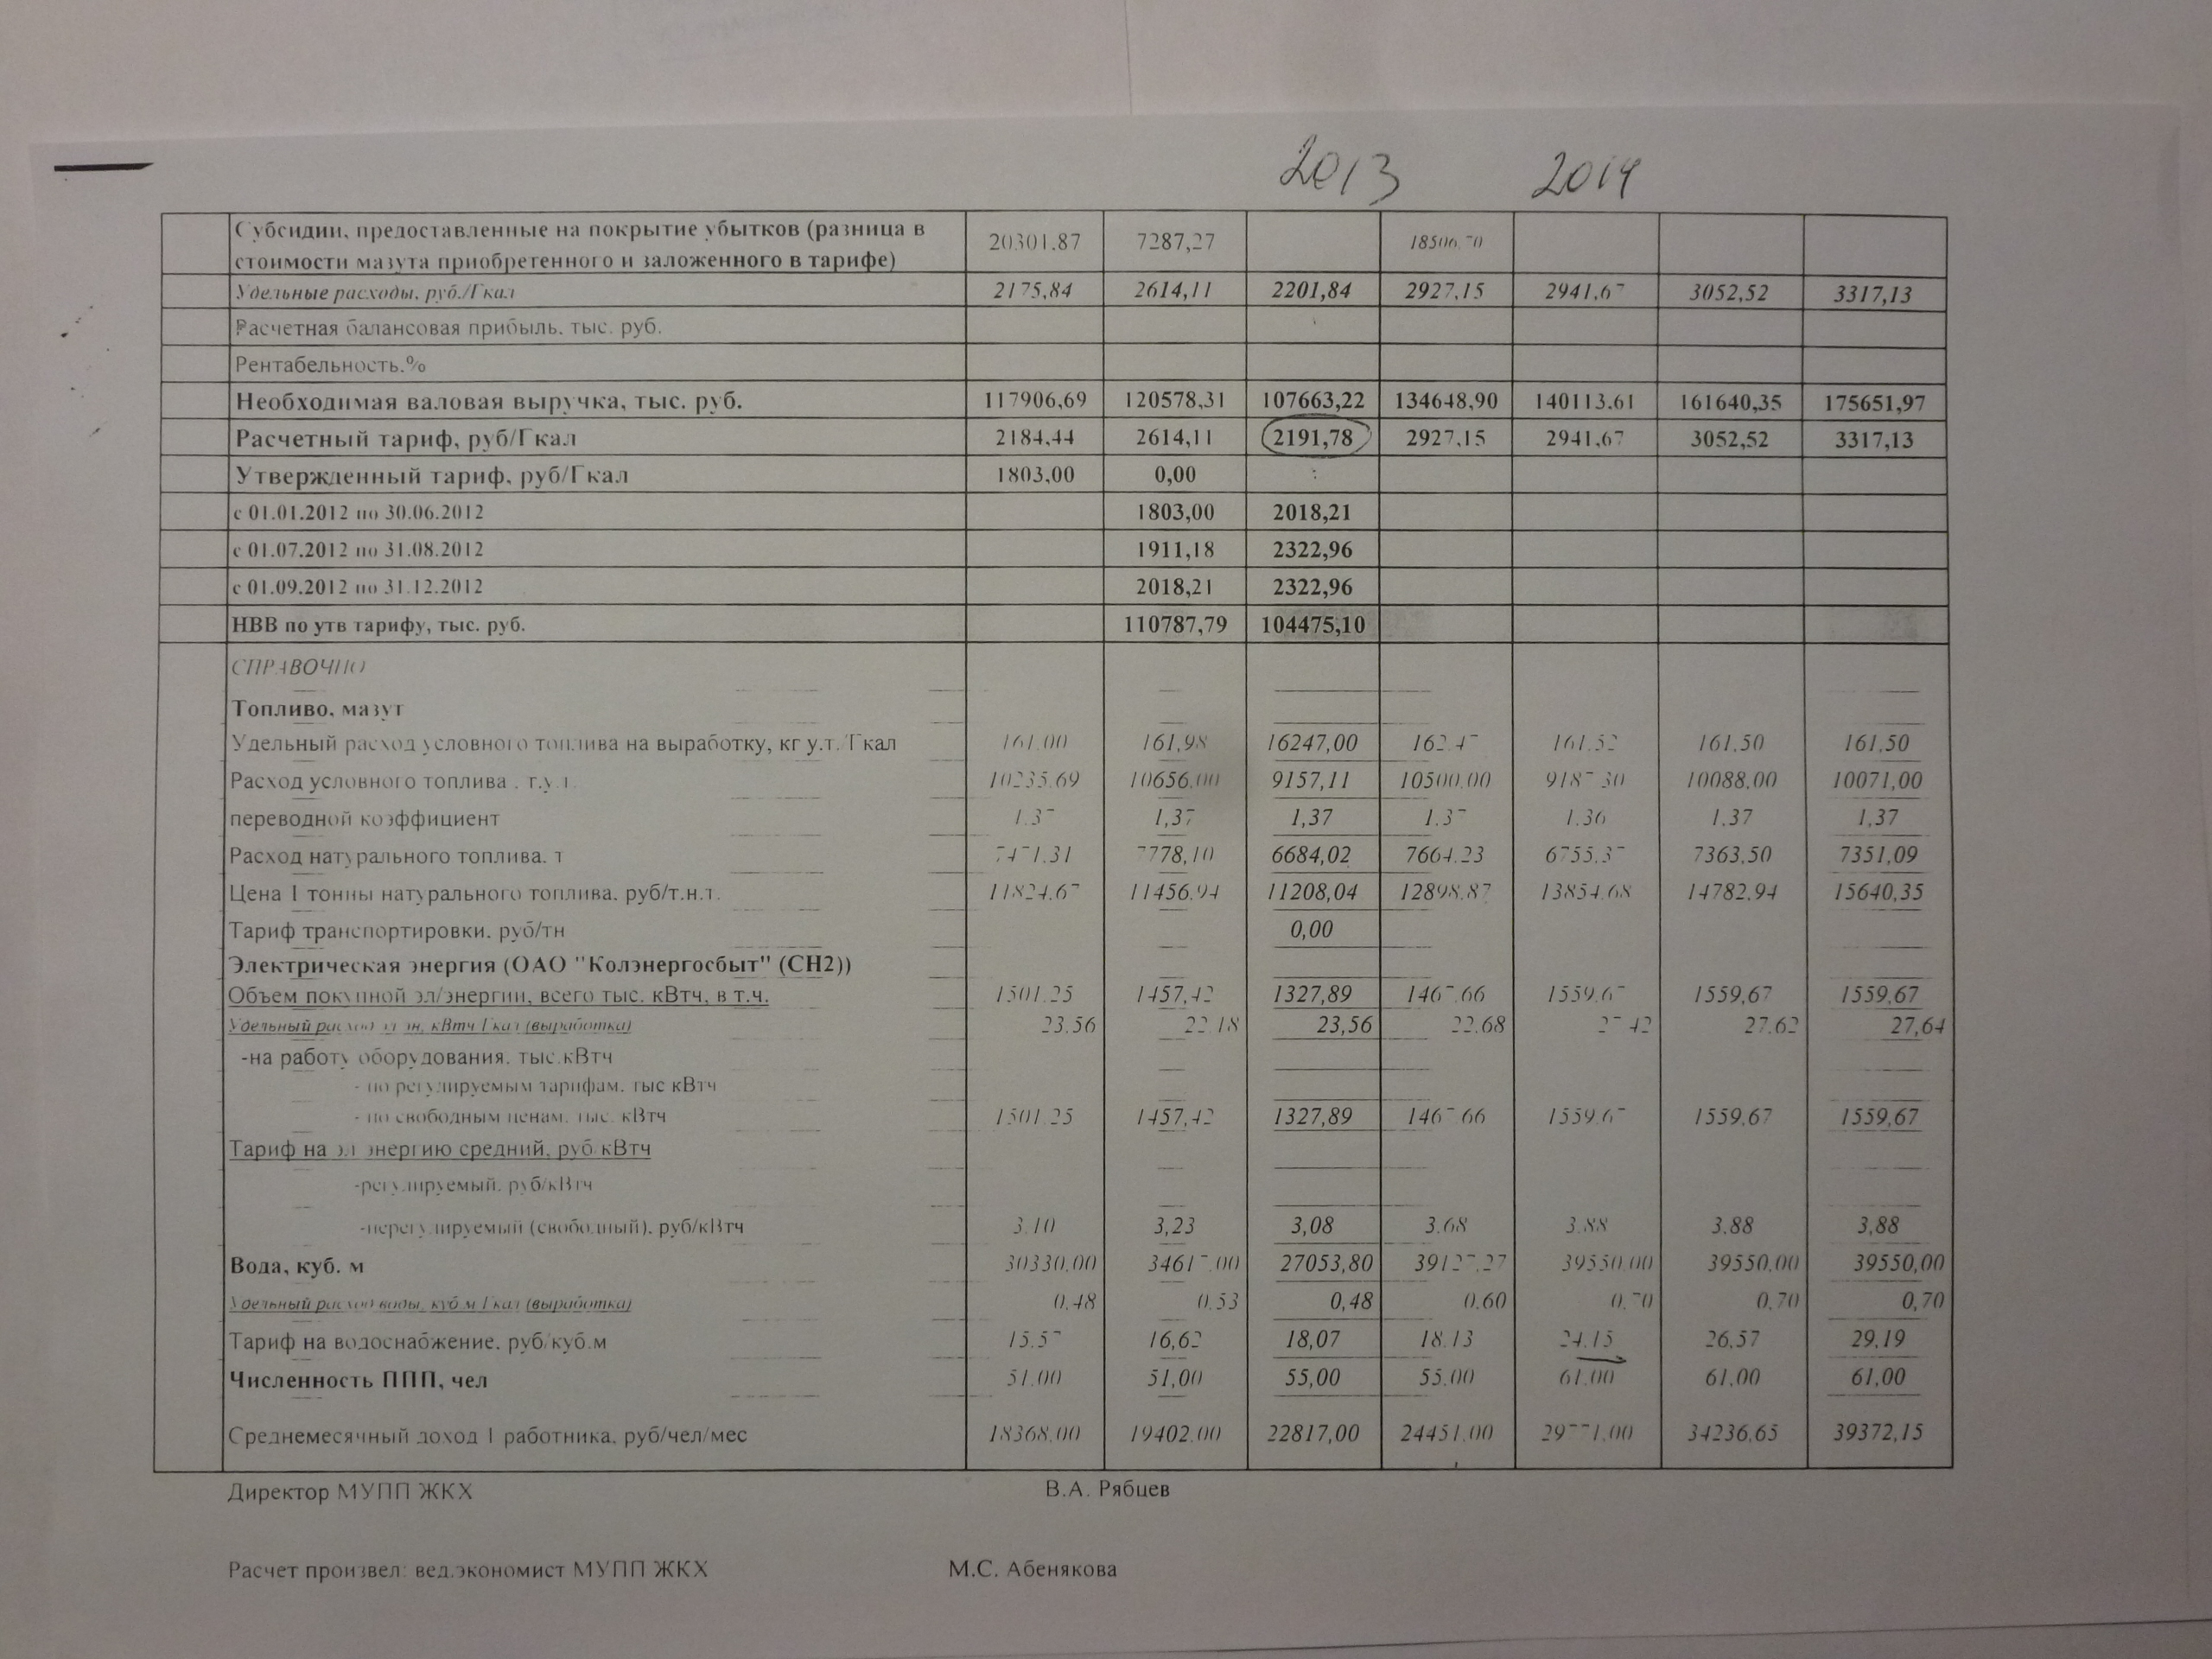 2013 2014
Субсидии, предоставленные на покрытие убытков (разница в
стоимости мазута приобретенного и заложенного в тарифе) 20301.87 7287,27 18506.70
Удельные расходы, руб./Гкал 2175,84 2614,11 2201,84 2927,15 2941,67 3052,52 3317,13
Расчетная балансовая прибыль. тыс. руб.
Рентабельность.%
Необходимая валовая выручка, тыс. руб. 117906,69 120578,31 107663,22 134648,90 140113.61 161640,35 175651,97
Расчетный тариф, руб/Гкал 2184,44 2614,11 2191,78 2927,15 2941,67 3052,52 3317,13
Утвержденный тариф, руб/Гкал 1803,00 0,00
с 01.01.2012 по 30.06.2012 1803,00 2018,21
с 01.07.2012 по 31.08.2012 1911,18 2322,96
с 01.09.2012 по 31.12.2012 2018,21 2322,96
НВВ по утв тарифу, тыс. руб. 110787,79 104475,10
СПРАВОЧНО
Топливо, мазут
Удельный расход условного топлива на выработку, кг у.т./Гкал 161.00 161,98 16247,00 162.47 161.52 161.50 161,50
Расход условного топлива . т.у.т. 10235.69 10656,00 9157,11 10500.00 9187.30 10088,00 10071,00
переводной коэффициент 1.37 1,37 1,37 1.37 1.36 1,37 1,37
Расход натурального топлива. т 7471.31 7778,10 6684,02 7664.23 6755.37 7363,50 7351,09
Цена 1 тонны натурального топлива. руб/т.н.т. 11824.67 11456,94 11208,04 12898.87 13854.68 14782,94 15640,35
Тариф транспортировки. руб/тн 0,00
Электрическая энергия (ОАО "Колэнергосбыт" (СН2))
Объем покупной эл/энергии, всего тыс. кВтч, в т.ч. 1501.25 1457,42 1327,89 1467.66 1559.67 1559,67 1559,67
Удельный расход эл эн, кВтч Гкал (выработка) 23.56 22.18 23,56 22.68 27.42 27.62 27,64
-на работу оборудования. тыс.кВтч
- по регулируемым тарифам. тыс кВтч
- по свободным ценам. тыс. кВтч 1501.25 1457,42 1327,89 1467.66 1559.67 1559,67 1559,67
Тариф на эл энергию средний, руб кВтч
-регулируемый. руб/кВтч
-нерегулируемый (свободный). руб/кВтч 3.10 3,23 3,08 3.68 3.88 3.88 3,88
Вода, куб. м 30330.00 34617.00 27053,80 39127.27 39550.00 39550,00 39550,00
Удельный расход воды, куб м Гкал (выработка) 0,48 0.53 0,48 0.60 0.70 0,70 0,70
Тариф на водоснабжение. руб/куб.м 15.57 16,62 18,07 18.13 24.15 26,57 29,19
Численность ППП, чел 51.00 51,00 55,00 55.00 61.00 61,00 61,00
Среднемесячный доход 1 работника, руб/чел/мес 18368,00 19402.00 22817,00 24451.00 29771.00 34236,65 39372,15
Директор МУПП ЖКХ В.А. Рябцев
Расчет произвел: вед.экономист МУПП ЖКХ М.С. Абенякова